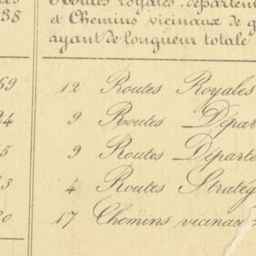 38
Routes royales, départem
et Chemins vicinaux de g
ayant de longueur totale
59 12 Routes Royales
24 9 Routes Dépar
5 9 Routes Départe
4 Routes Stratég
20 17 Chemins vicinaux